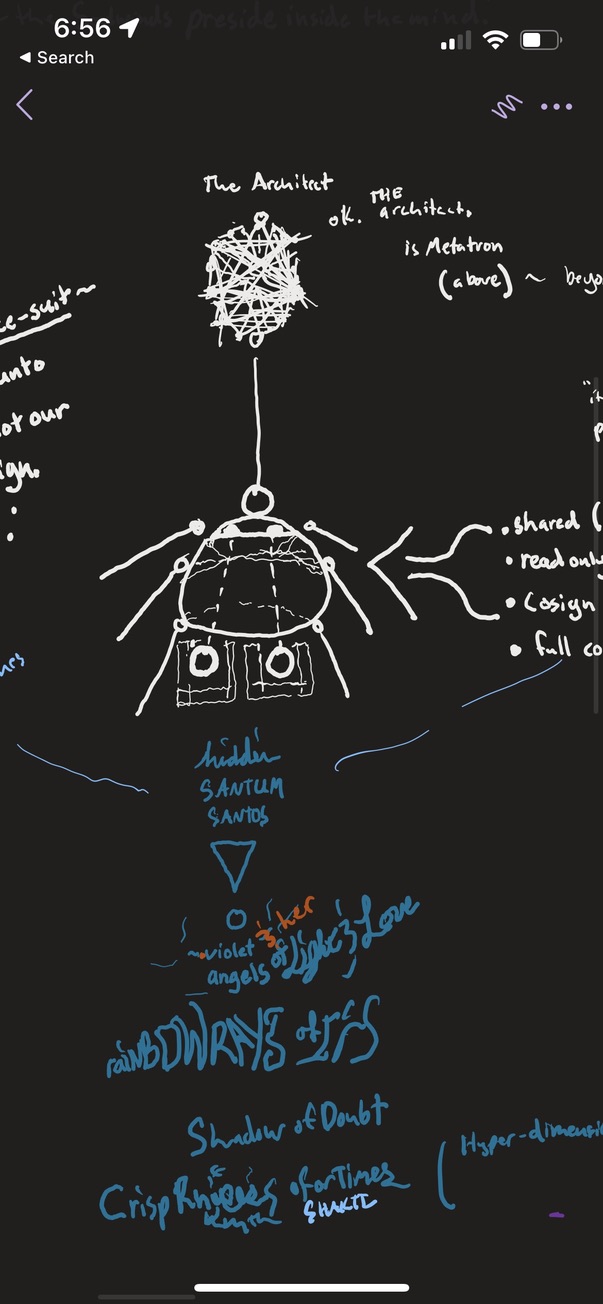 preside inside the mind.
6:56
Search
The Architect
ok. THE architect.
is Metatron
(above) ~ beyo
ce-suit ~
unto
ot our
ign.
"it
p
• shared (
• read only
• Cosign
• full co
urs
hidden
SANTUM
SANTOS
violet & her
angels of Light & Love
raiNBOWRAYS of IrIS
Shadow of Doubt
Hyper-dimensi
Crisp
of or Times
SHAKTI